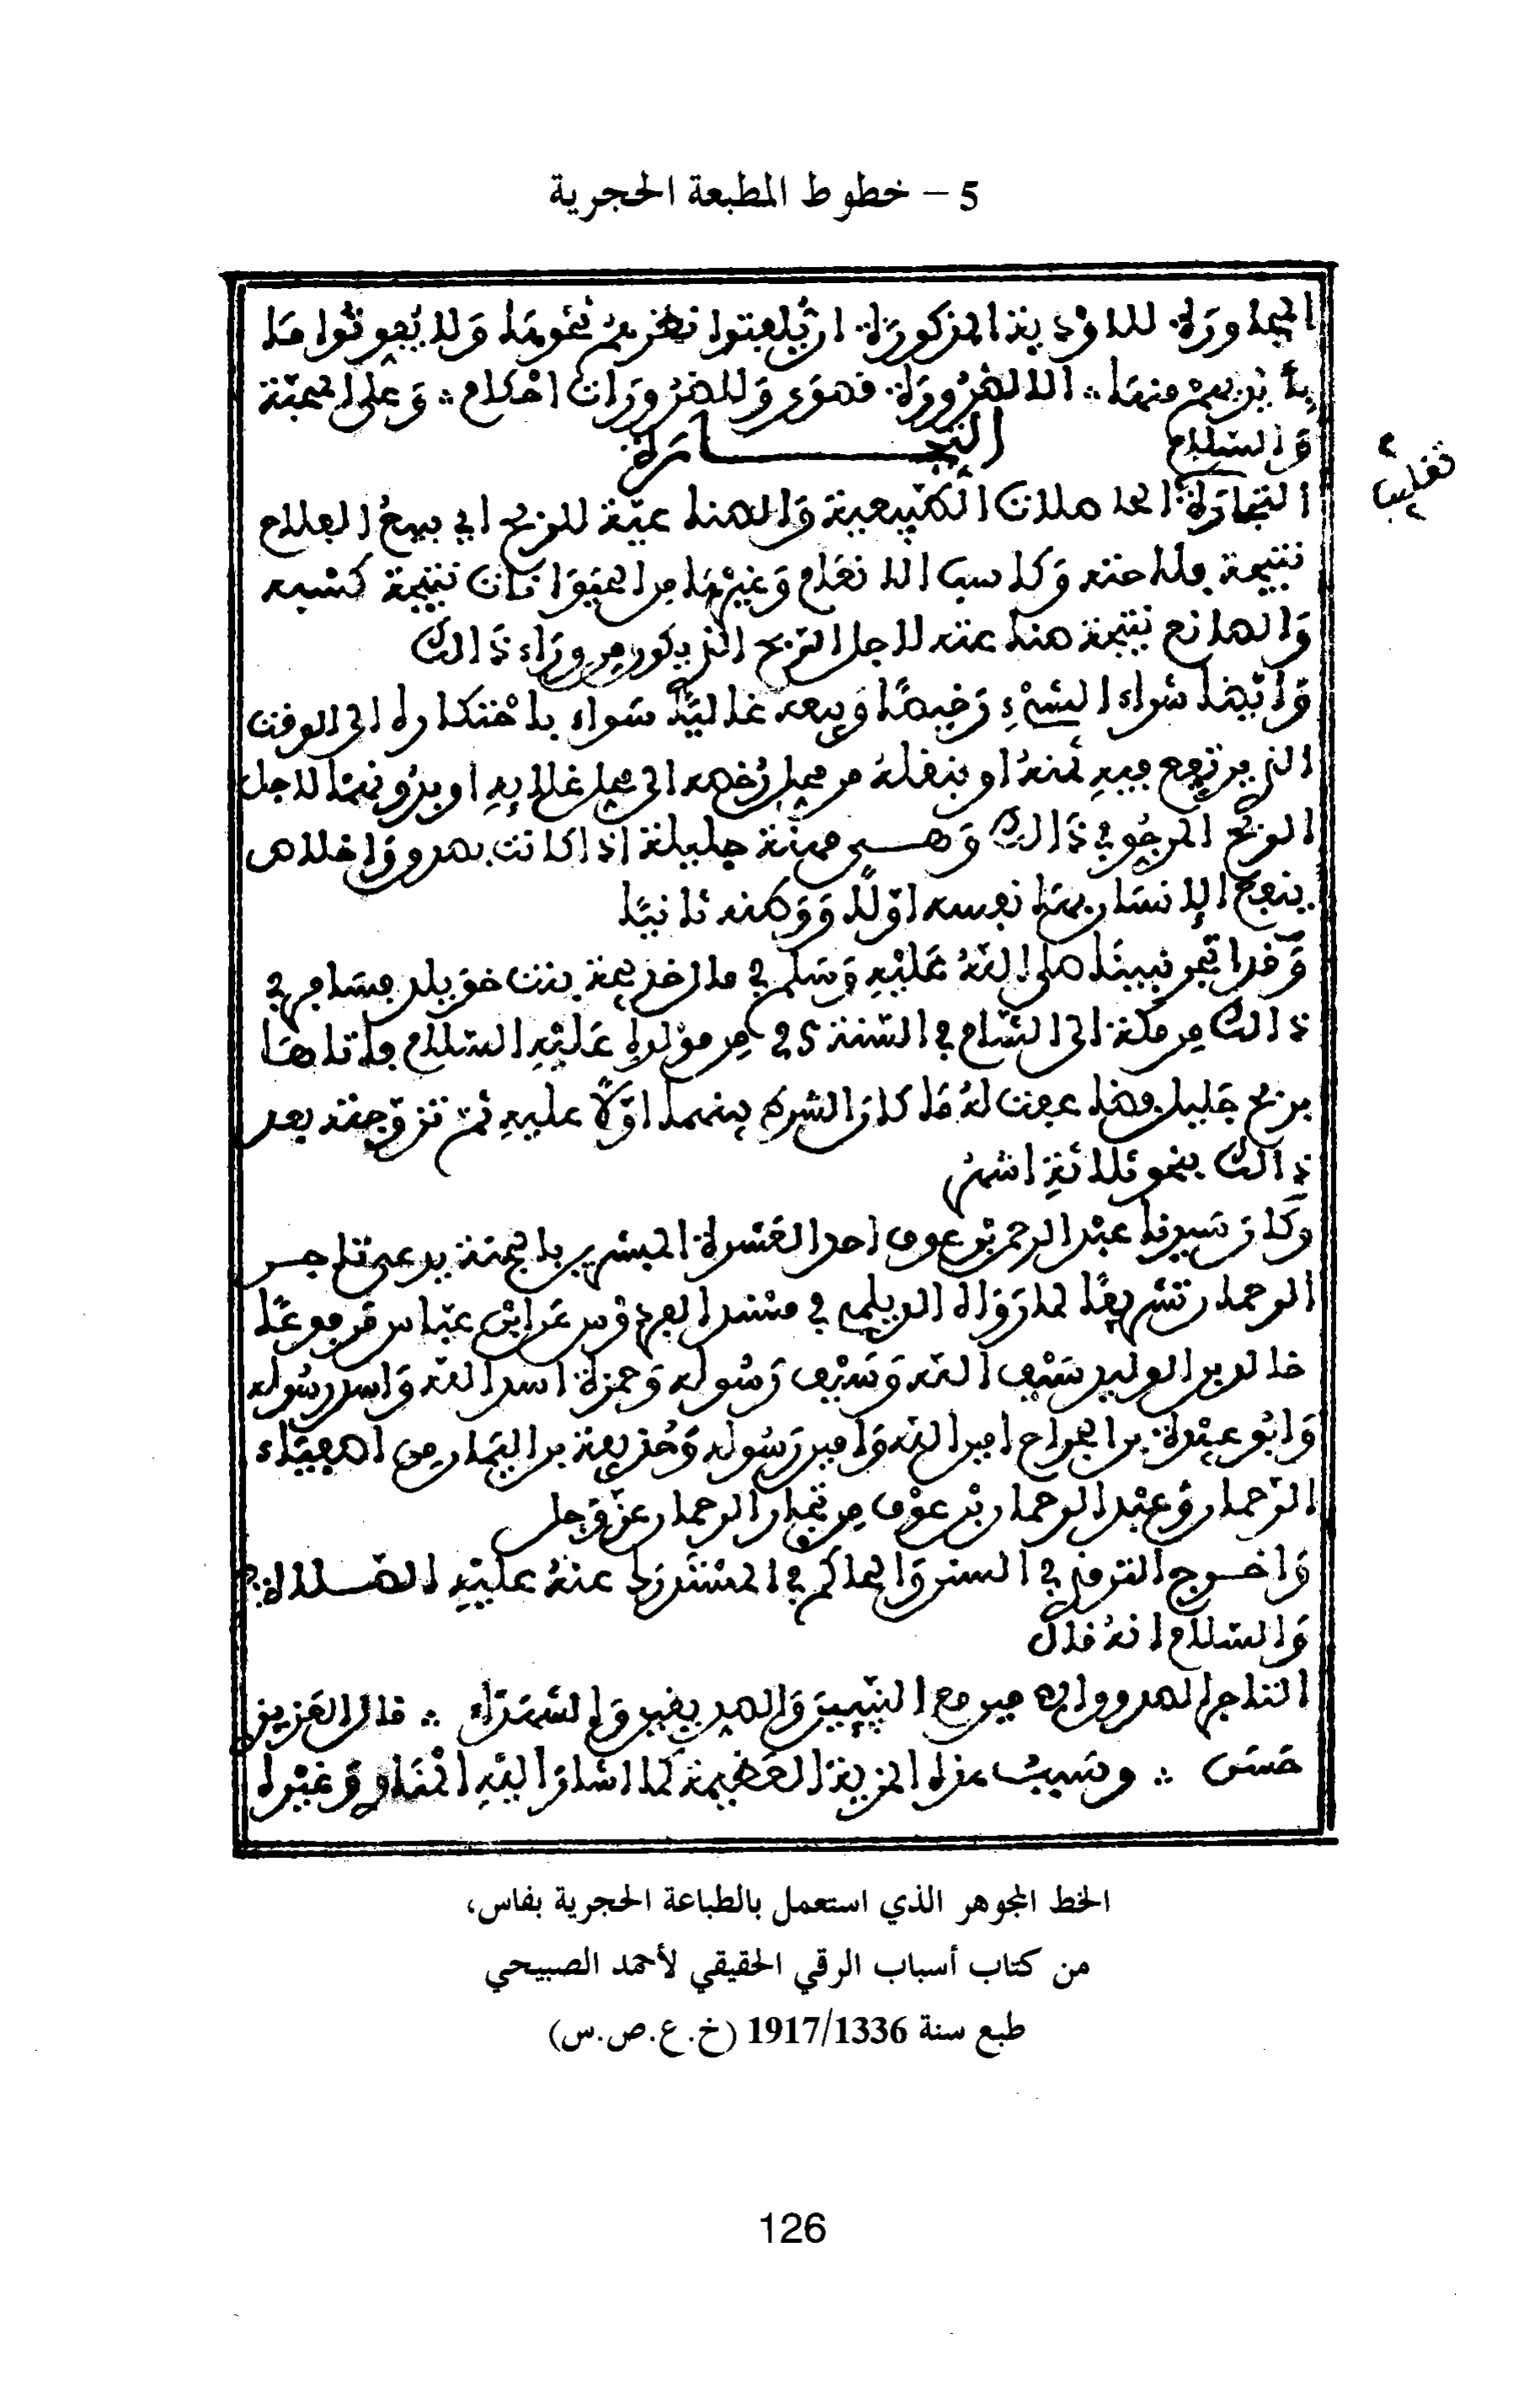 5 – خطوط المطبعة الحجرية
المجاورة للاودية المذكورة ان يلفتوا نظرهم نحوها ولا يفوتوا ما
بأيديهم منها ؞ الا لضرورة فصوى وللضرورات احكام ؞ وعلى المحبة
والسلام
التجـــارة
تغليب
التجارة المحاولات الطبيعية والصناعية للربح اي بيع الفلاح
نتيجة فلاحته وكاسب الانعام وغيرها من الحيوانات نتيجة كسبه
والصانع نتيجة صناعته لاجل الربح الذي يكون من وراء ذالك
وايضا شراء الشيء رخيصا وبيعه غاليا سواء باحتكاره الى الوقت
الذي يرتفع فيه ثمنه او بنقله من محل رخصه الى محل غلائه او بدونهما لاجل
الربح المرجو في ذالك وهـي مهنة جليلة اذا كانت بصدق واخلاص
ينفع الانسان بها نفسه اولا ووطنه ثانيا
وقد اتجر نبينا صلى الله عليه وسلم في مال خديجة بنت خويلد فسافر في
ذالك من مكة الى الشام في السنة 25 من مولده عليه السلام فاتاها
بربح جليل فضاعفت له ما كان الشرط بينهما اولا عليه ثم تزوجته بعد
ذالك بنحو ثلاثة اشهر
وكان سيدنا عبد الرحمن بن عوف احد العشرة المبشرين بالجنة يدعى تاجـر
الرحمان تشريفا لما رواه الديلمي في مسند الفردوس عن ابن عباس مرفوعا
خالد بن الوليد سيف الله وسيف رسوله وحمزة اسد الله واسد رسوله
وابو عبيدة بن الجراح امين الله وامين رسوله وحذيفة بن اليمان من اصفياء
الرحمان وعبد الرحمان بن عوف من تجار الرحمان عز وجل
واخـرج الترمذي في السنن والحاكم في المستدرك عنه عليه الصـلاة
والسلام انه قال
التاجر الصدوق الامين مع النبيين والصديقين والشهداء ؞ قال العزيزي
حسن ؞ وسبب هذه المزية العظيمة كما اشار اليه المناوي وغيره
الخط المجوهر الذي استعمل بالطباعة الحجرية بفاس،
من كتاب أسباب الرقي الحقيقي لأحمد الصبيحي
طبع سنة 1917/1336 (خ.ع.ص.س)
126